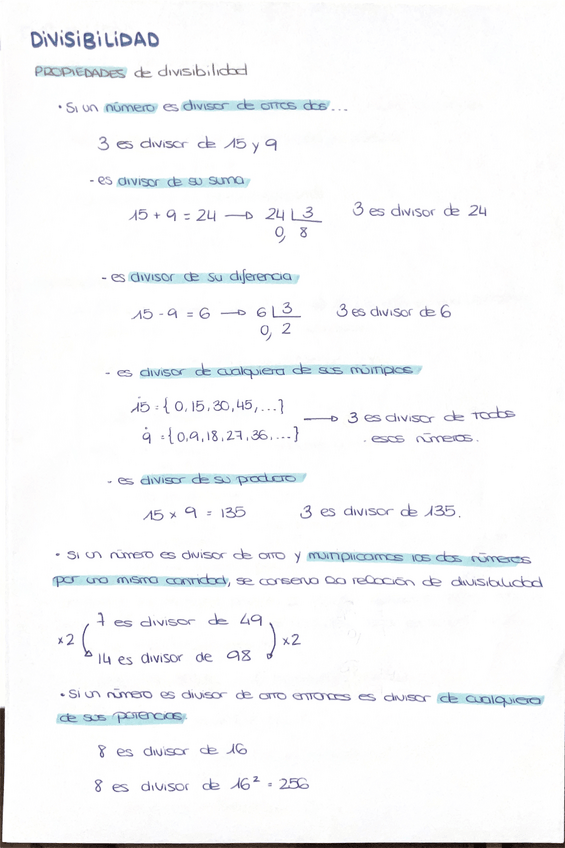 DIVISIBILIDAD
PROPIEDADES de divisibilidad
• Si un número es divisor de otros dos...
3 es divisor de 15 y 9
- es divisor de su suma
15 + 9 = 24 → 24 | 3 3 es divisor de 24
0, 8
- es divisor de su diferencia
15 - 9 = 6 → 6 | 3 3 es divisor de 6
0, 2
- es divisor de cualquiera de sus múltiplos
1̇5 = { 0, 15, 30, 45, ... }
→ 3 es divisor de todos
9̇ = { 0, 9, 18, 27, 36, ... } esos números.
- es divisor de su producto
15 × 9 = 135 3 es divisor de 135.
• Si un número es divisor de otro y multiplicamos los dos números
por una misma cantidad, se conserva la relación de divisibilidad
7 es divisor de 49
×2 ×2
14 es divisor de 98
• Si un número es divisor de otro entonces es divisor de cualquiera
de sus potencias
8 es divisor de 16
8 es divisor de 16² = 256